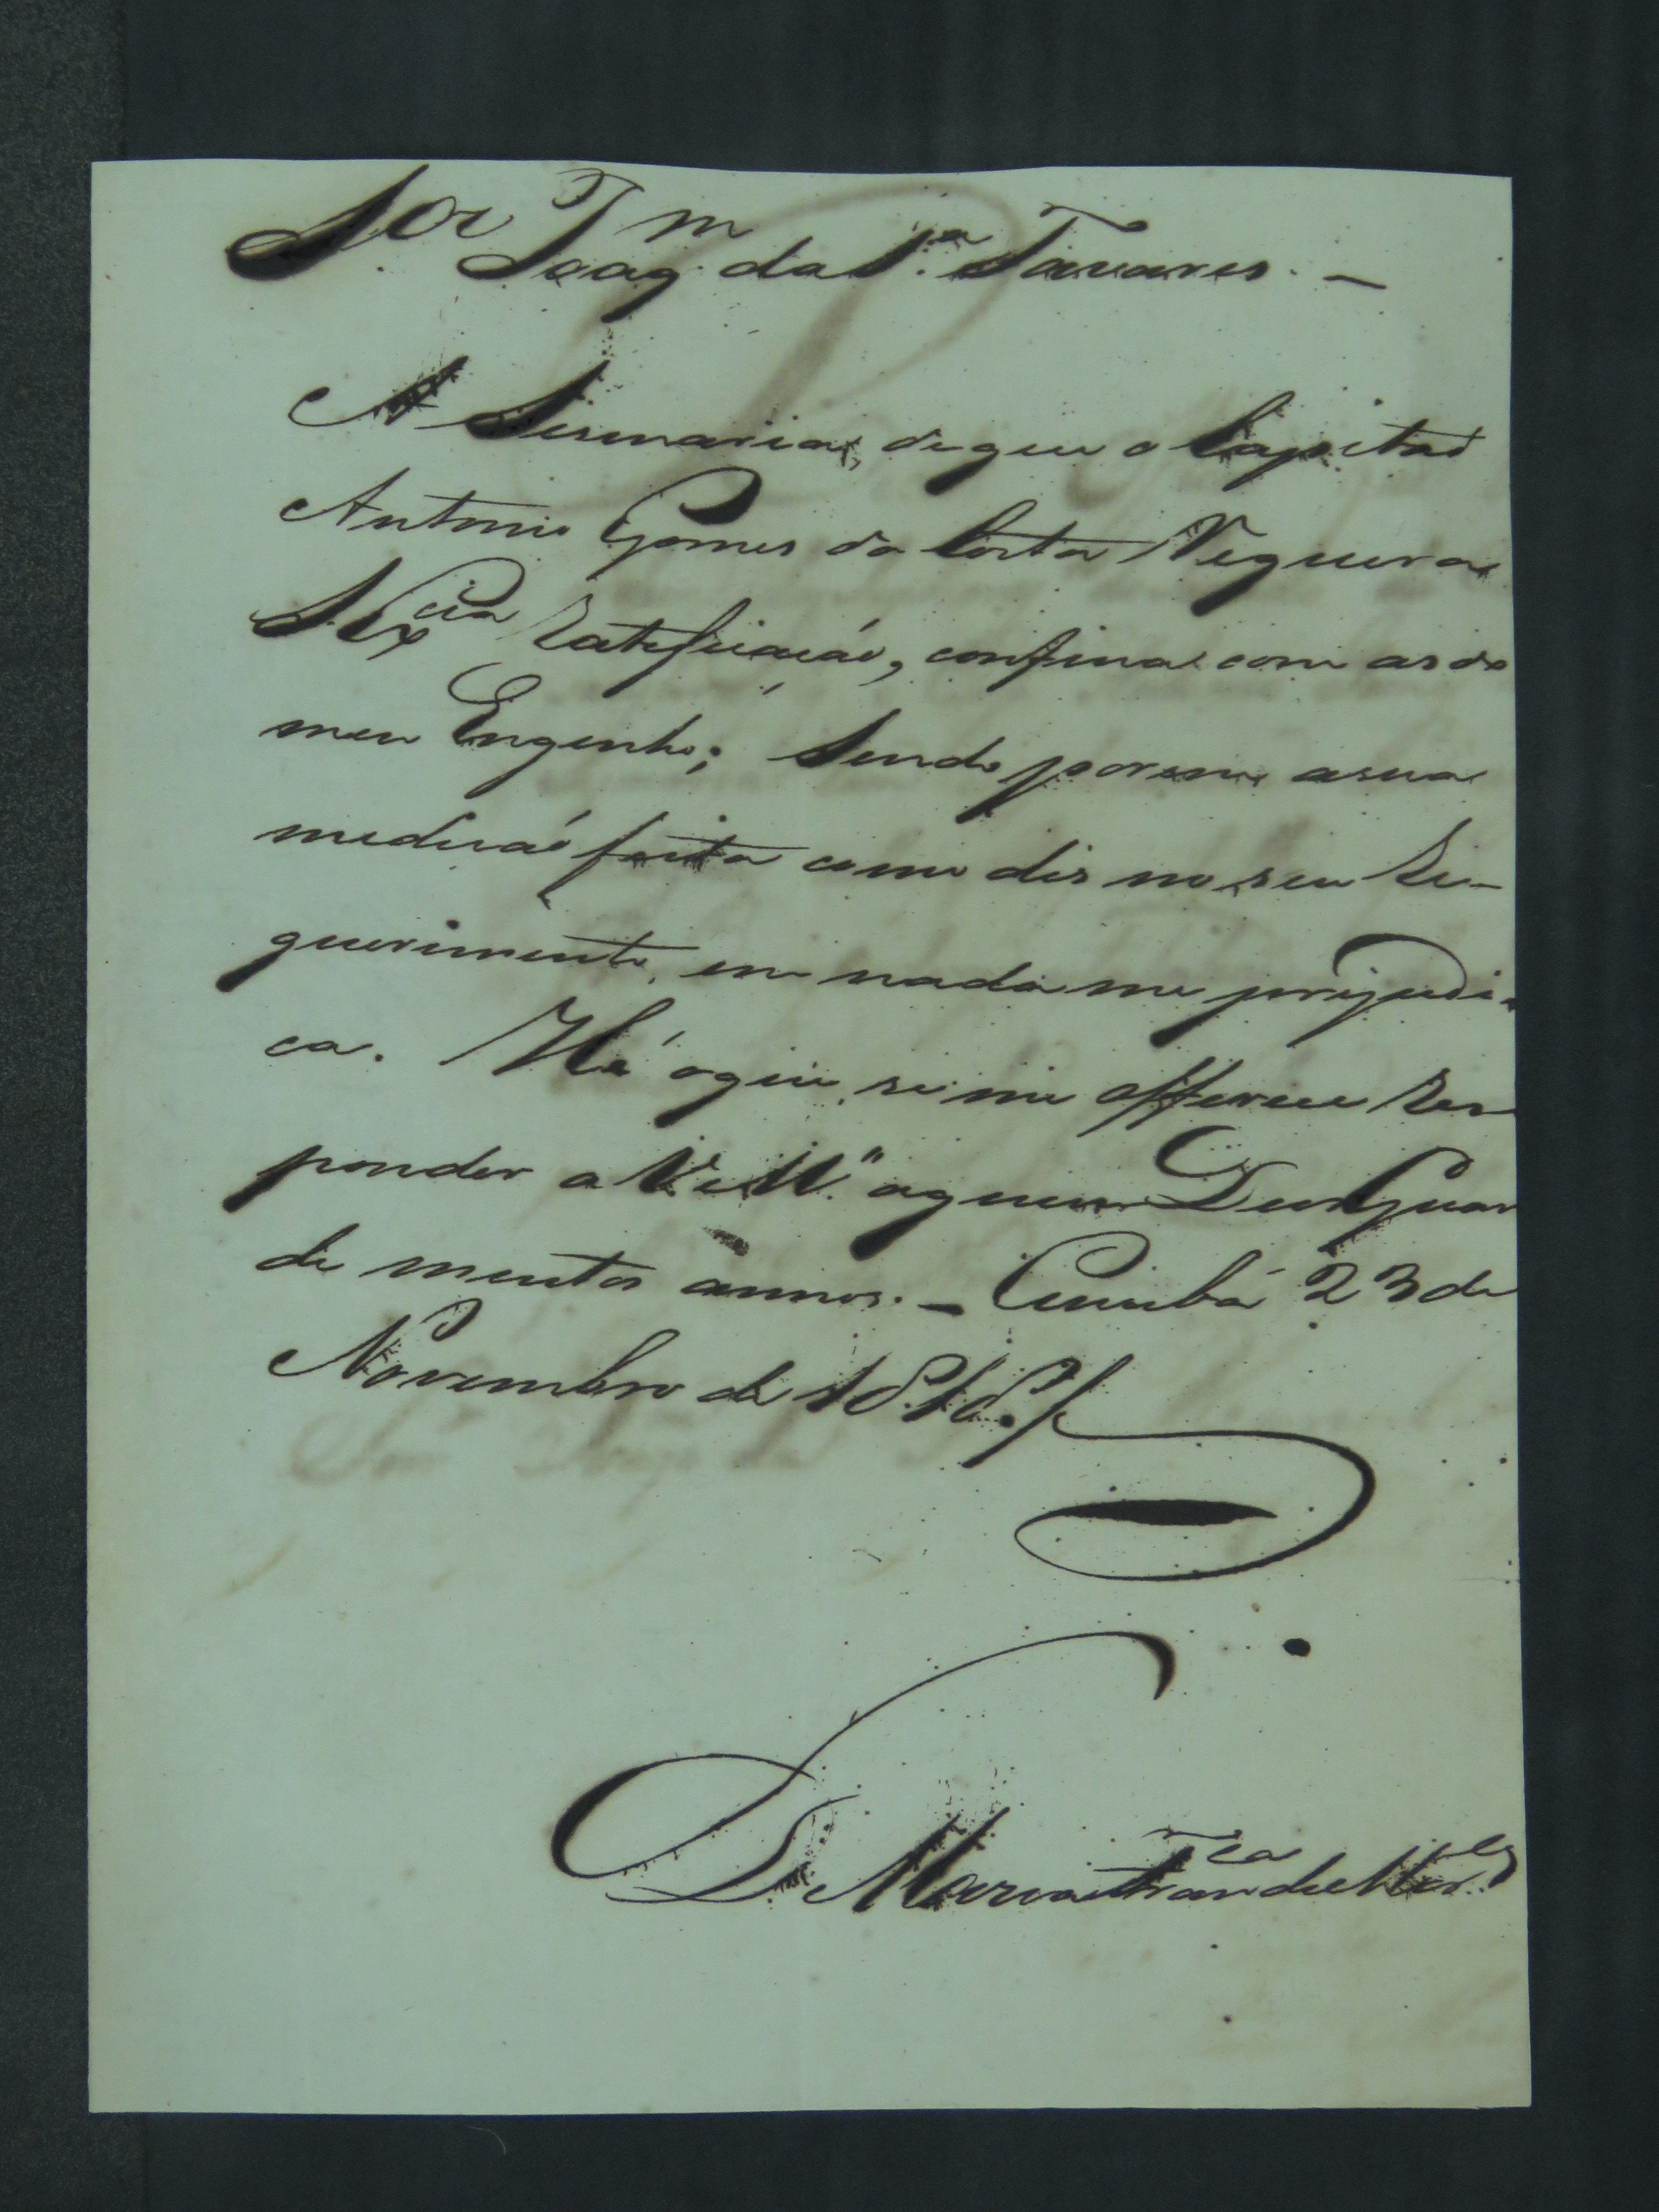 S.or Joaq.m da S.a Tavares. —
A Sesmaria, deque o Capitaõ
Antonio Gomes da Costa Requer a
S. Ex.cia Ratificaçaõ, confina com as do
meu Engenho; Sendo porem asua
mediçaõ feita como dis no seu Re-
querimento, em nada me prejudi-
ca. Hé oque se me offerece Res
ponder a V. M.ce aquem Deos Guar
de muitos annos. — Cuiabá 23 de
Novembro de 1818.
D. Maria Fran.ca de